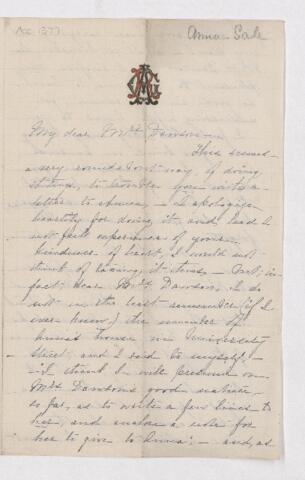 Acc 1377
Anna Gale
My dear Mrs Dawson
This seems
a very roundabout way, of doing
things, to trouble you with a
letter to Anna, - I apologise
heartily for doing it, and had I
not felt experience of your
kindness of heart, I would not
think of having it thus. - But, in
fact, dear Mrs Dawson, I do
not in the least remember (if I
ever knew) the number of
Anna's house in University
Street, and I said to myself, -
"I think I will presume on
Mrs Dawson's good nature,
so far, as to write a few lines to
her, and enclose a note for
her to give to Anna": - and, as